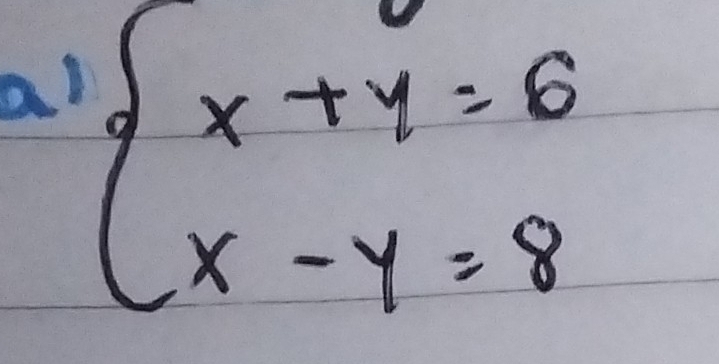 a) x + y = 6
x - y = 8